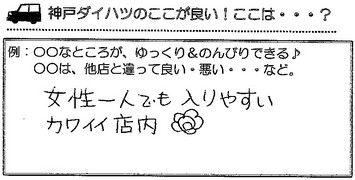 神戸ダイハツのここが良い！ここは・・・？
例：○○なところが、ゆっくり＆のんびりできる♪
○○は、他店と違って良い・悪い・・・など。
女性一人でも入りやすい
カワイイ店内